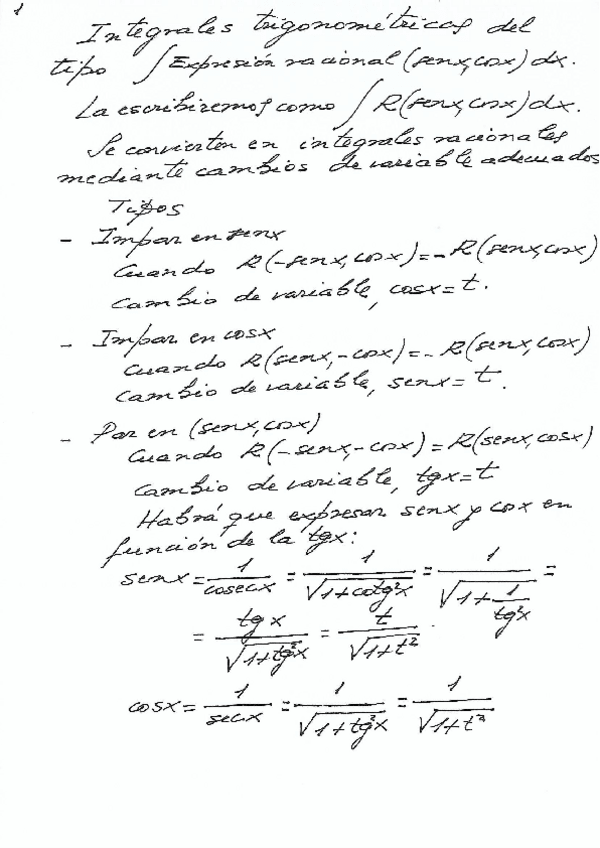 1
Integrales trigonométricas del
tipo ∫Expresión racional (senx,cosx) dx.
La escribiremos como ∫R(senx,cosx)dx.
Se convierten en integrales racionales
mediante cambios de variable adecuados
Tipos
- Impar en senx
Cuando R(-senx,cosx)=-R(senx,cosx)
Cambio de variable, cosx=t.
- Impar en cosx
Cuando R(senx,-cosx)=-R(senx,cosx)
Cambio de variable, senx=t.
- Par en (senx,cosx)
Cuando R(-senx,-cosx)=R(senx,cosx)
Cambio de variable, tgx=t
Habrá que expresar senx y cosx en
función de la tgx:
senx = 1/cosecx = 1/√(1+cotg²x) = 1/√(1+1/tg²x) =
= tgx/√(1+tg²x) = t/√(1+t²).
cosx = 1/secx = 1/√(1+tg²x) = 1/√(1+t²)